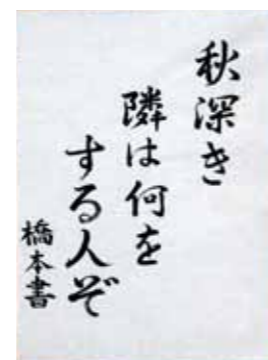 秋深き
隣は何を
する人ぞ
橋本書